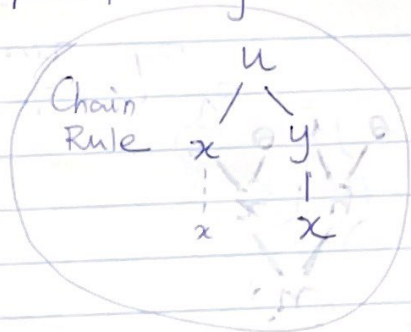 u
Chain
Rule x y
x x